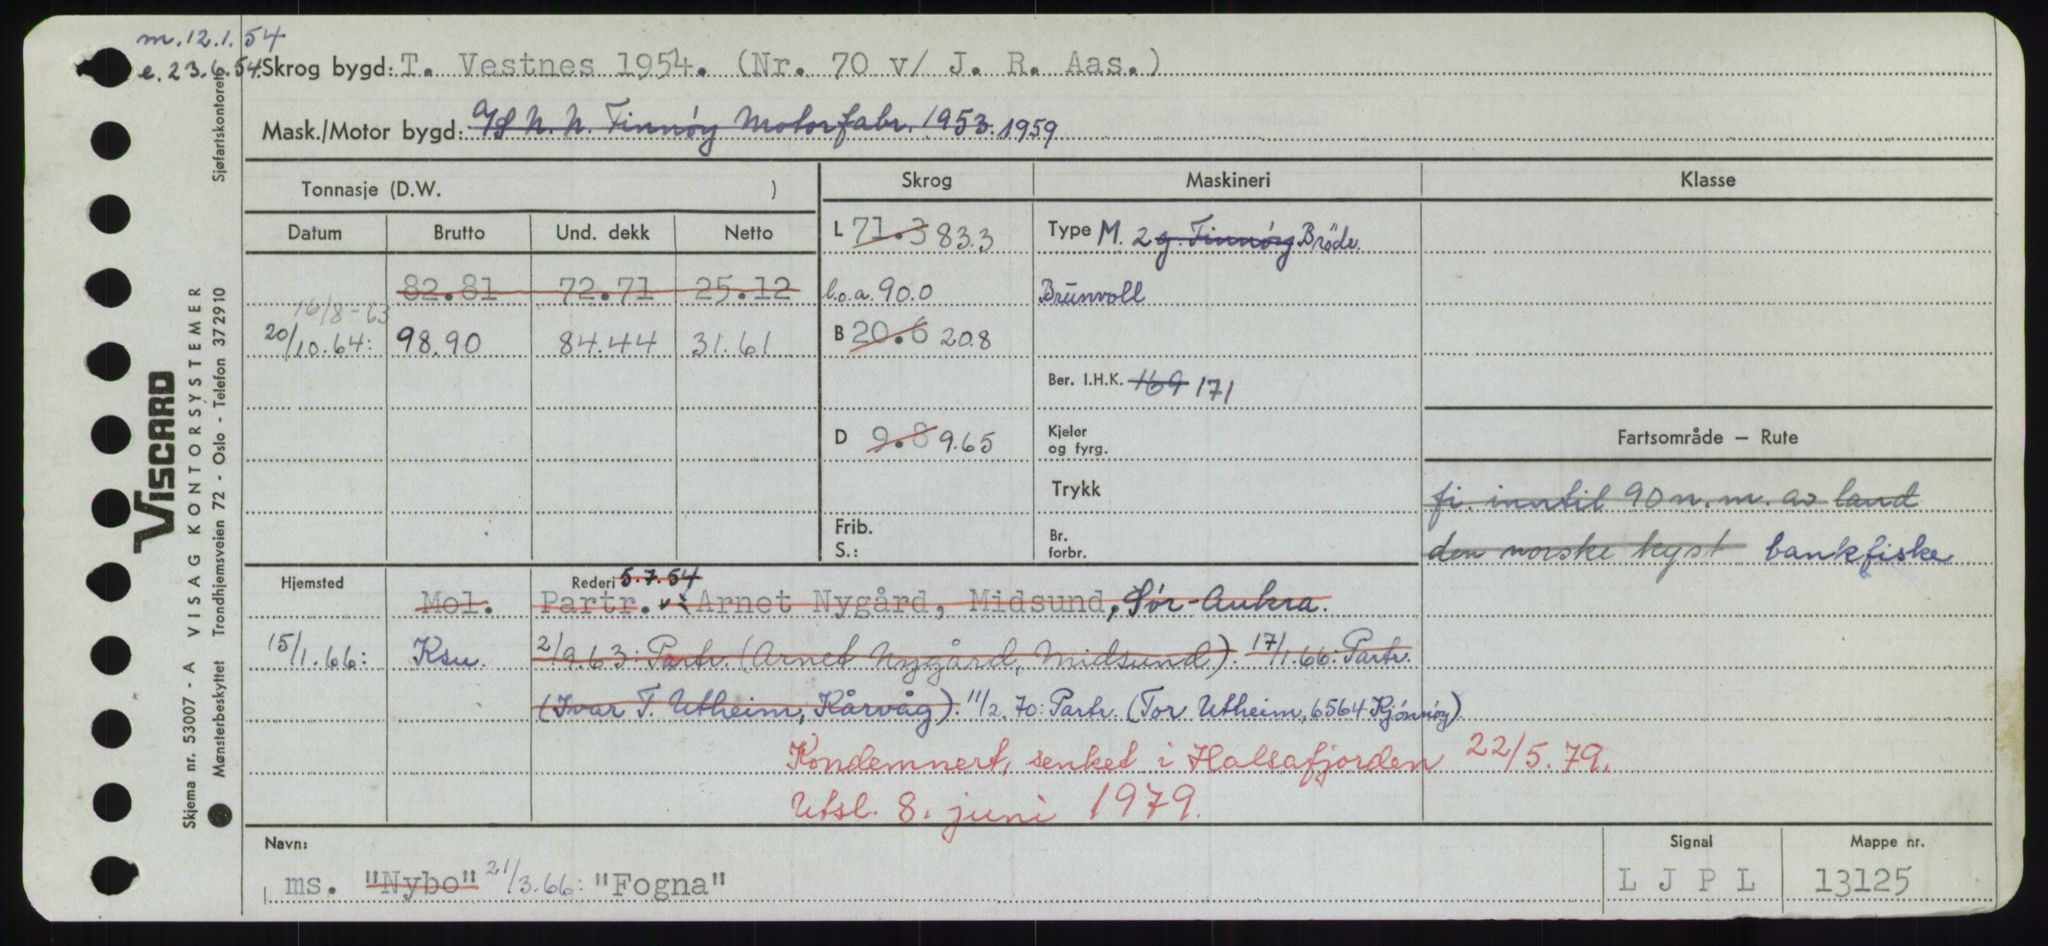 m. 12.1.54
e. 23.6.54 Skrog bygd: T. Vestnes 1954. (Nr. 70 v/ J. R. Aas.)
Mask./Motor bygd: A/S N. N. Finnøy Motorfabr. 1953. 1959
Tonnasje (D.W. )
Skrog
Maskineri
Klasse
Datum Brutto Und. dekk Netto
L 71.3 83.3
Type M. 2 g. Finnøy Brødr.
82.81 72.71 25.12
l.o.a. 90.0
Brunvoll
16/8-63
20/10.64: 98.90 84.44 31.61
B 20.6 20.8
Ber. I.H.K. 169 171
D 9.8 9.65
Kjeler
og fyrg.
Fartsområde – Rute
Trykk
fi. inntil 90 n. m. av land
Frib.
S.:
Br.
forbr.
den norske kyst bankfiske
Hjemsted
Rederi 5.7.54
Mol. Partr. v/ Arnet Nygård, Midsund, Sør-Aukra.
15/1.66: Ksu. 2/9.63: Partr. (Arnet Nygård, Midsund). 17/1.66: Partr.
(Ivar T. Utheim, Kårvåg). 11/2.70: Partr. (Tor Utheim, 6564 Kjønnøy).
Kondemnert, senket i Halsafjorden 22/5.79.
Utsl. 8. juni 1979.
Navn:
Signal
Mappe nr.
ms. "Nybo" 21/3.66: "Fogna"
L J P L
13125
VISCARD
Skjema nr. 53007 - A VISAG KONTORSYSTEMER
Mønsterbeskyttet Trondhjemsveien 72 - Oslo - Telefon 372910
Sjøfartskontoret